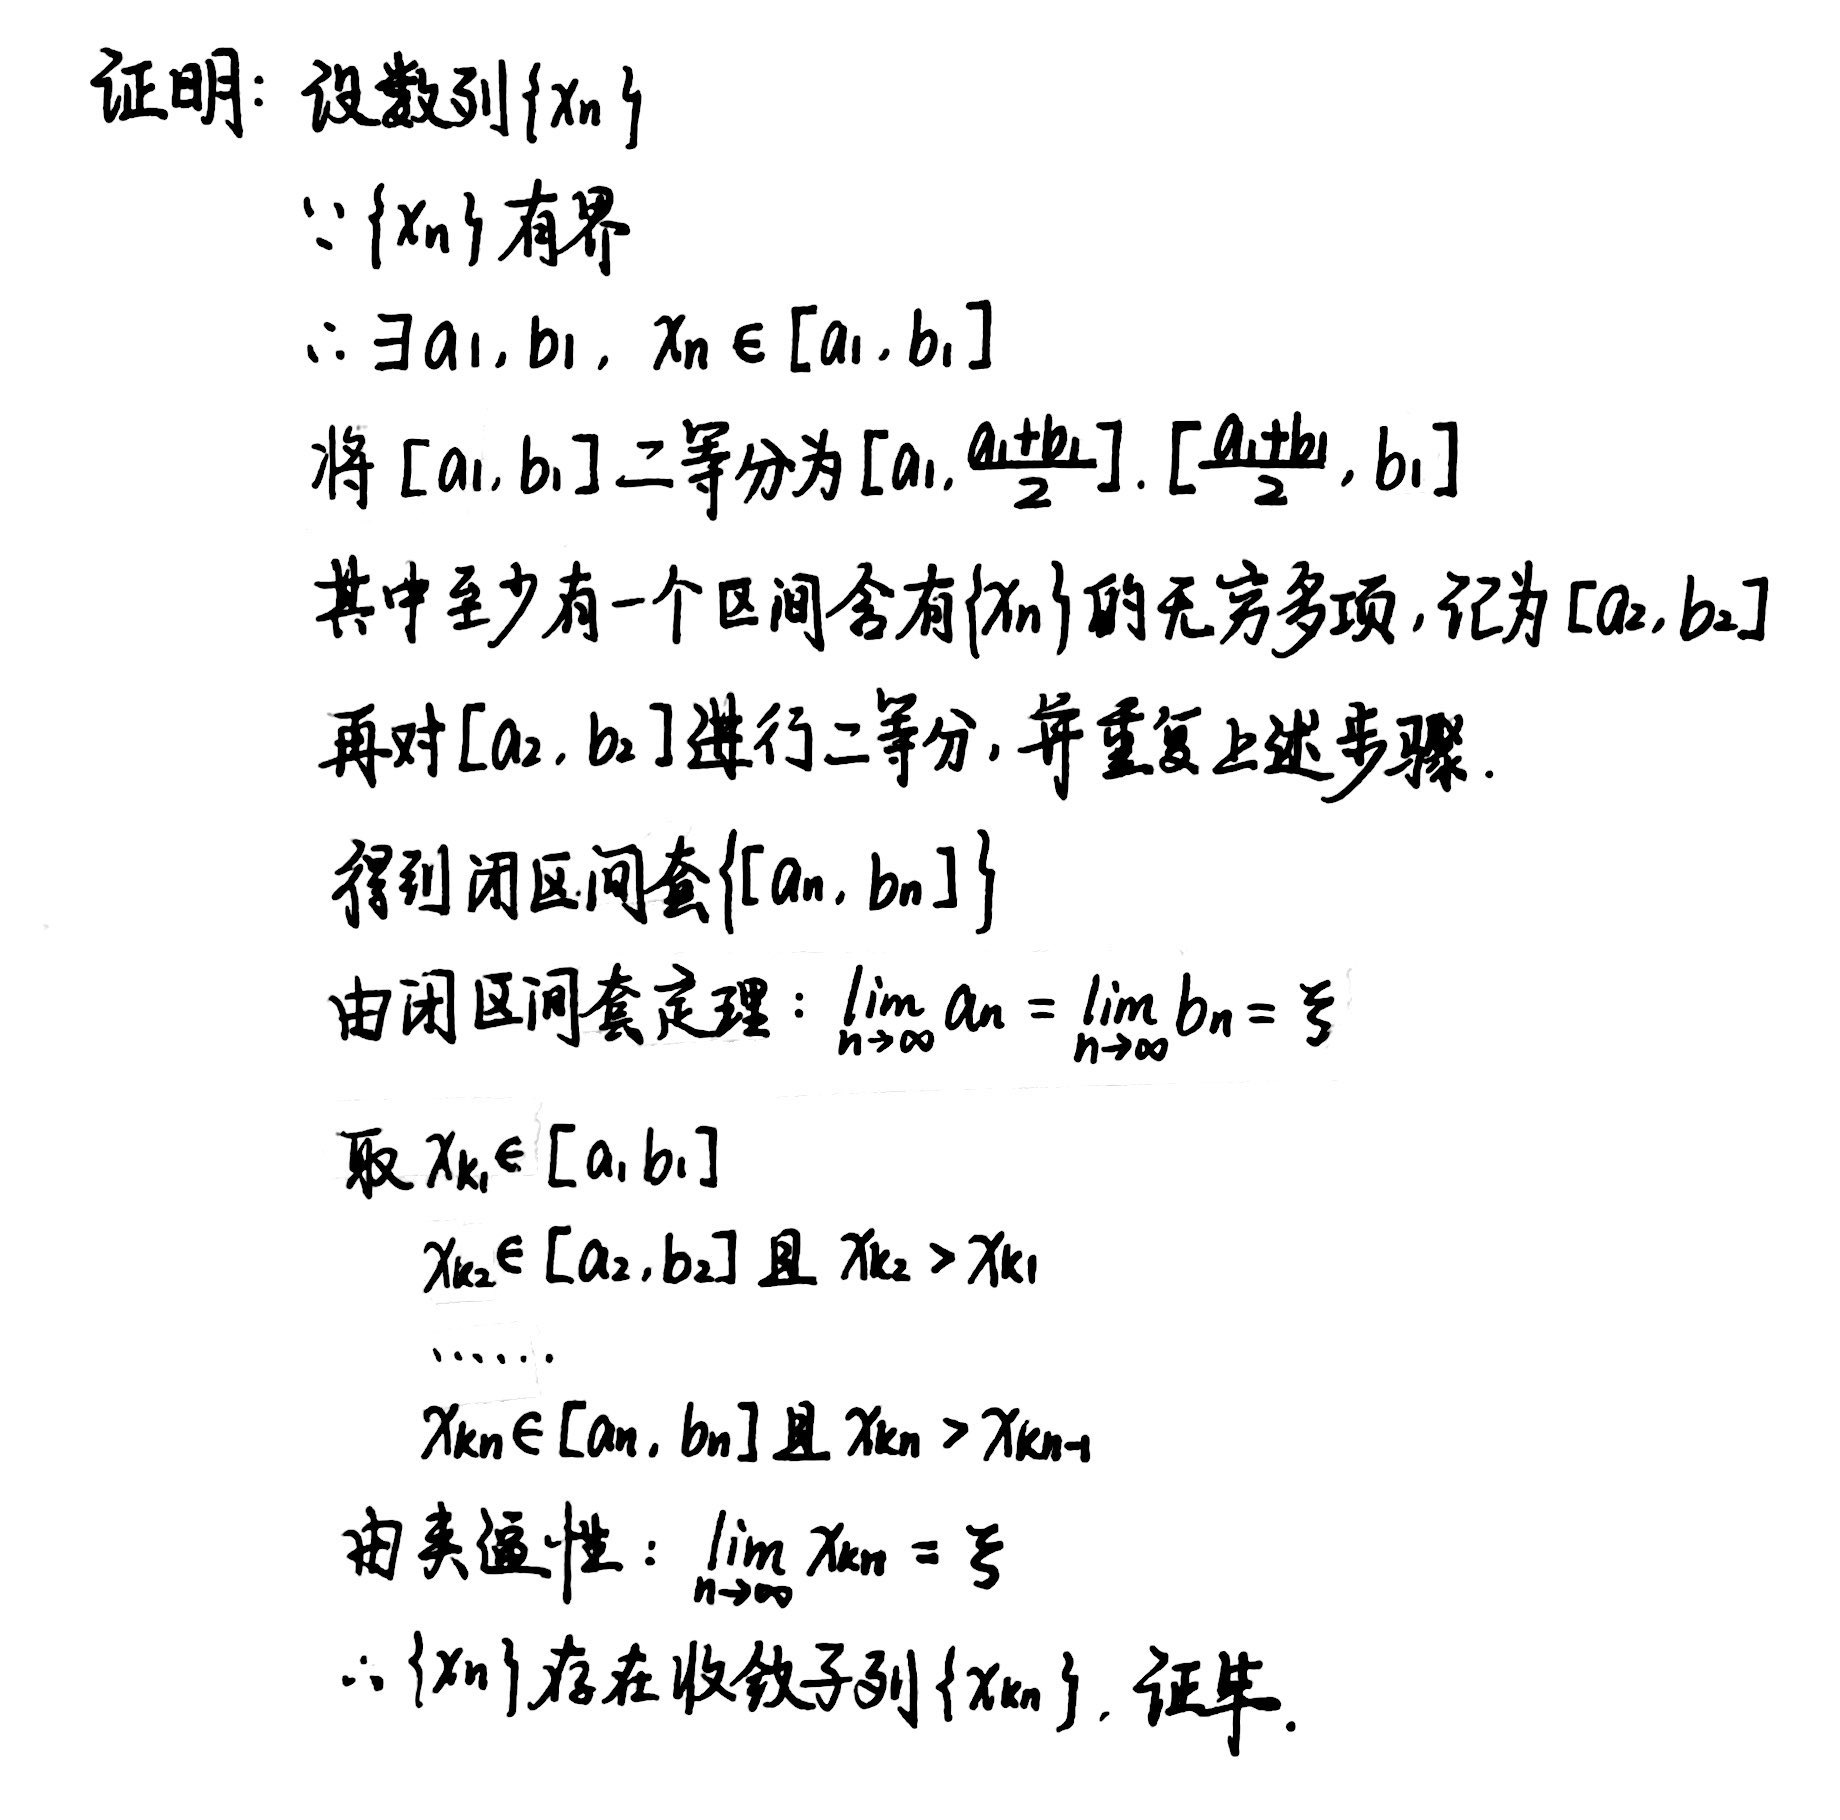 证明：设数列{xn}
∵{xn}有界
∴∃a1,b1, xn∈[a1,b1]
将[a1,b1]二等分为[a1,(a1+b1)/2].[(a1+b1)/2,b1]
其中至少有一个区间含有{xn}的无穷多项,记为[a2,b2]
再对[a2,b2]进行二等分,并重复上述步骤.
得到闭区间套{[an,bn]}
由闭区间套定理: lim n→∞ an = lim n→∞ bn = ξ
取 xk1∈[a1 b1]
xk2∈[a2,b2]且 xk2 > xk1
......
xkn∈[an,bn]且 xkn > xkn-1
由夹逼性: lim n→∞ xkn = ξ
∴{xn}存在收敛子列{xkn}, 证毕.